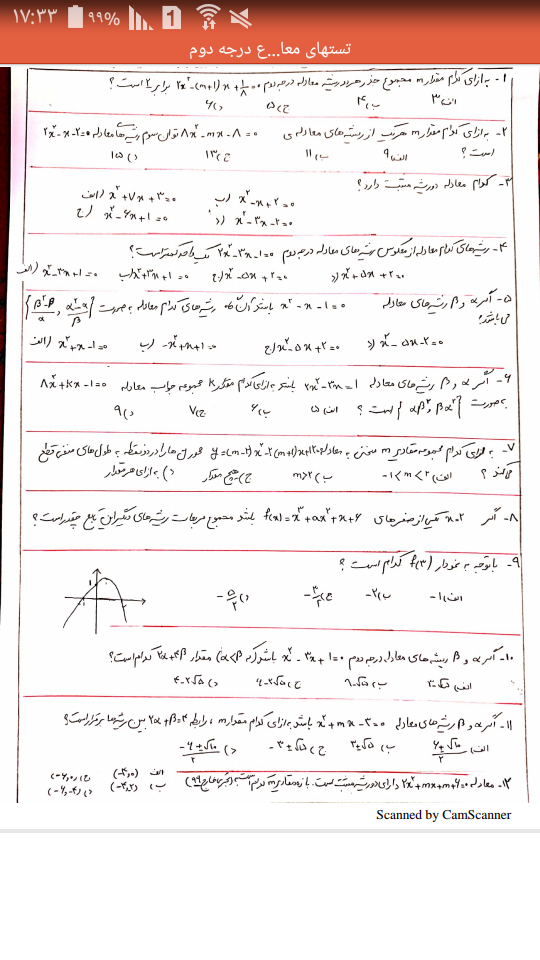 ۱۷:۳۳ ۹۹% 1
تستهای معا...ع درجه دوم
۱- به ازای کدام مقدار m مجموع جذر هر دو ریشه معادله درجه دوم ۲x²-(m+1)x+1/8=0 برابر ۲ است؟
الف) ۳ ب) ۴ ج) ۵ د) ۶
۲- به ازای کدام مقدار m هر یک از ریشه‌های معادله‌ی ۸x²-mx-۸=۰ توان سوم ریشه‌ها معادله ۲x²-x-۲=۰
است؟ الف) ۹ ب) ۱۱ ج) ۱۳ د) ۱۵
۳- کدام معادله دو ریشه مثبت دارد؟
الف) x²+۷x+۳=۰ ب) x²-x+۲=۰
ج) x²-۶x+۱=۰ د) x²-۳x-۲=۰
۴- ریشه‌های کدام معادله از معکوس ریشه‌های معادله درجه دوم ۲x²-۳x-۱=۰ یک واحد کمتر است؟
الف) x²-۳x+۱=۰ ب) x²+۳x+۱=۰ ج) x²-۵x+۲=۰ د) x²+۵x+۲=۰
۵- اگر α و β ریشه‌های معادله x²-x-۱=۰ باشد آن گاه ریشه‌های کدام معادله به صورت {(α²-α)/β , (β²-β)/α}
می باشد؟
الف) x²+x-۱=۰ ب) -x²+x+۱=۰ ج) x²-۵x+۲=۰ د) x²-۵x-۲=۰
۶- اگر α و β ریشه‌های معادله ۲x²-۳x=۱ باشند به ازای کدام مقدار k مجموعه جواب معادله ۸x²+kx-۱=۰
به صورت {αβ², βα²} است؟ الف) ۵ ب) ۶ ج) ۷ د) ۹
۷- به ازای کدام مجموعه مقادیر m منحنی به معادله y=(m-۲)x²-۲(m+۱)x+۱۲ محور xها را در دو نقطه به طول های منفی قطع
می کند؟ الف) -۱<m<۲ ب) m>۲ ج) هیچ مقدار د) به ازای هر مقدار
۸- اگر x=۲ یکی از صفرهای f(x)=x³+ax²+x+۶ باشد مجموع مربعات ریشه‌های دیگر این تابع چقدر است؟
۹- با توجه به نمودار f(۳) کدام است؟
الف) -۱ ب) -۲ ج) -۳/۲ د) -۵/۲
۱۰- اگر α و β ریشه‌های معادله درجه دوم x²-۳x+۱=۰ باشد (که α<β) مقدار ۲α+۴β کدام است؟
ج) ۶-۲√۵ د) ۴-۲√۵
۱۱- اگر α و β ریشه‌های معادله x²+mx-۳=۰ باشد به ازای کدام مقدار m، رابطه ۲α+β=۴ بین ریشه‌ها برقرار است؟
الف) (۶±√۱۰)/۲ ب) ۳±√۵ ج) -۳±√۵ د) (-۶±√۱۰)/۲
۱۲- معادله ۲x²+mx+m+۶=۰ دارای دو ریشه مثبت است. بازه مقادیر m کدام است؟ (تجربی خارج ۹۹)
الف) (-۴,۰) ب) (-۴,۲) ج) (-۶,۰) د) (-۶,-۴)
Scanned by CamScanner